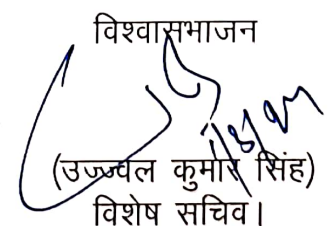 विश्वासभाजन
(उज्ज्वल कुमार सिंह)
विशेष सचिव।